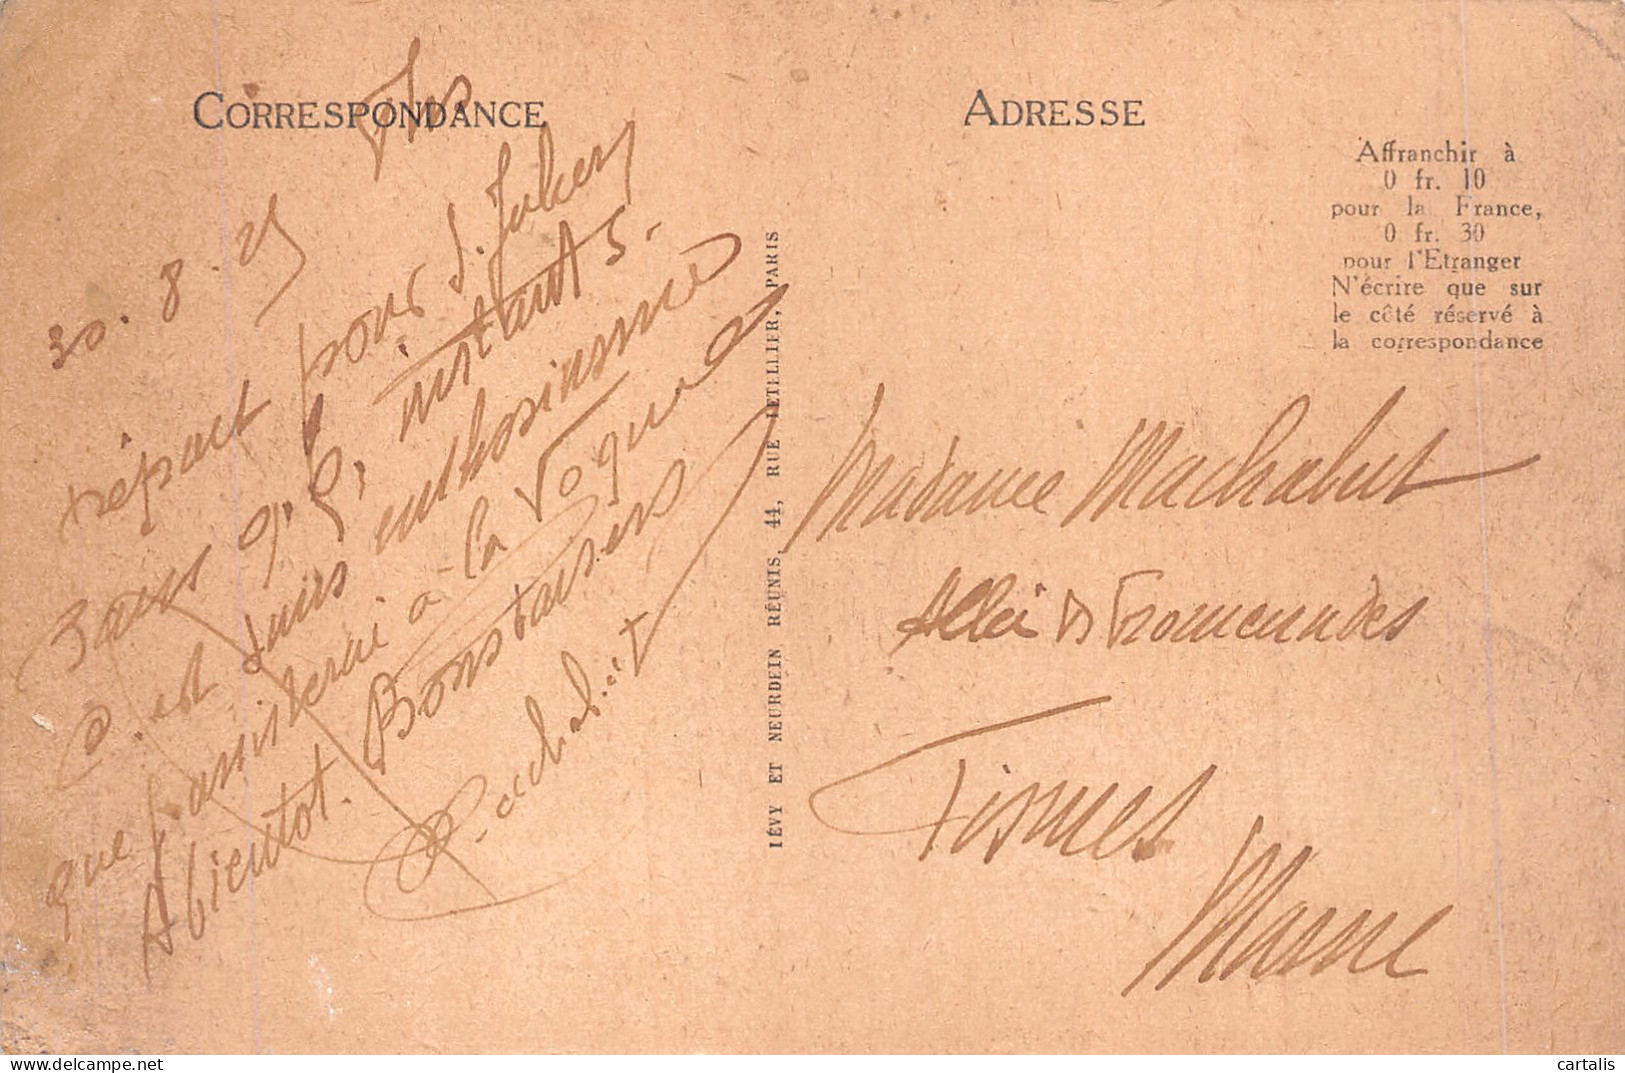 CORRESPONDANCE
30 . 8 . 25
repart pour
dans instants.
C'est suis enthousiasme
que j'assisterai à la Vogue
Abientot. Bons baisers
ADRESSE
Affranchir à
0 fr. 10
pour la France,
0 fr. 30
pour l'Etranger
N'écrire que sur
le côté réservé à
la correspondance
LÉVY ET NEURDEIN RÉUNIS, 44, RUE LETELLIER, PARIS
Madame Machabut
Allée des Promenades
Fismes
Marne
cartalis